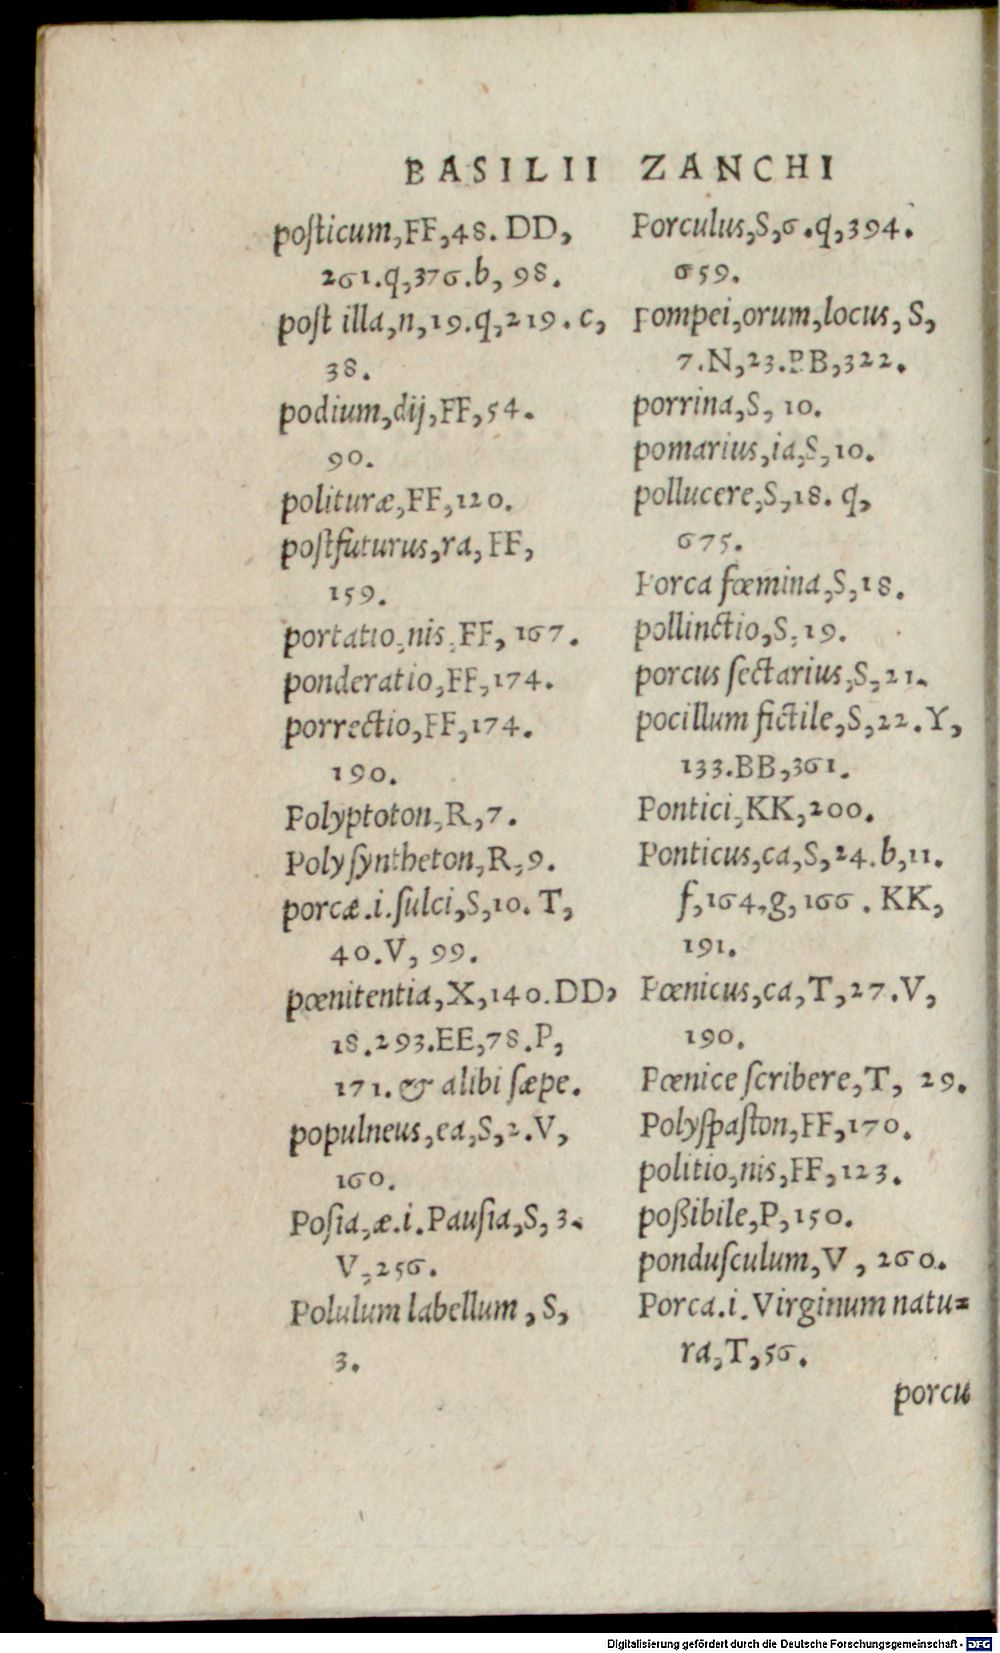 BASILII ZANCHI
poſticum,FF,48. DD,
261.q,376.b, 98.
poſt illa,n,19.q,219. c,
38.
podium,dij,FF,54.
90.
polituræ,FF,120.
poſtfuturus,ra, FF,
159.
portatio,nis,FF, 167.
ponderatio,FF,174.
porrectio,FF,174.
190.
Polyptoton,R,7.
Polyſyntheton,R,9.
porcæ.i.ſulci,S,10. T,
40.V, 99.
pœnitentia,X,140.DD,
18.293.EE,78.P,
171. & alibi ſæpe.
populneus,ea,S,2.V,
160.
Poſia,æ.i.Pauſia,S,3.
V,256.
Polulum labellum, S,
3.
Porculus,S,6.q,394.
659.
Pompei,orum,locus, S,
7.N,23.BB,322.
porrina,S, 10.
pomarius,ia,S,10.
pollucere,S,18. q,
675.
Porca fœmina,S,18.
pollinctio,S,19.
porcus ſectarius,S,21.
pocillum fictile,S,22.Y,
133.BB,361.
Pontici,KK,200.
Ponticus,ca,S,24.b,11.
f,164.g,166. KK,
191.
Pœnicus,ca,T,27.V,
190.
Pœnice ſcribere,T, 29.
Polyſpaſton,FF,170.
politio,nis,FF,123.
poßibile,P,150.
ponduſculum,V, 260.
Porca.i.Virginum natu=
ra,T,56.
porcu
Digitalisierung gefördert durch die Deutsche Forschungsgemeinschaft - DFG